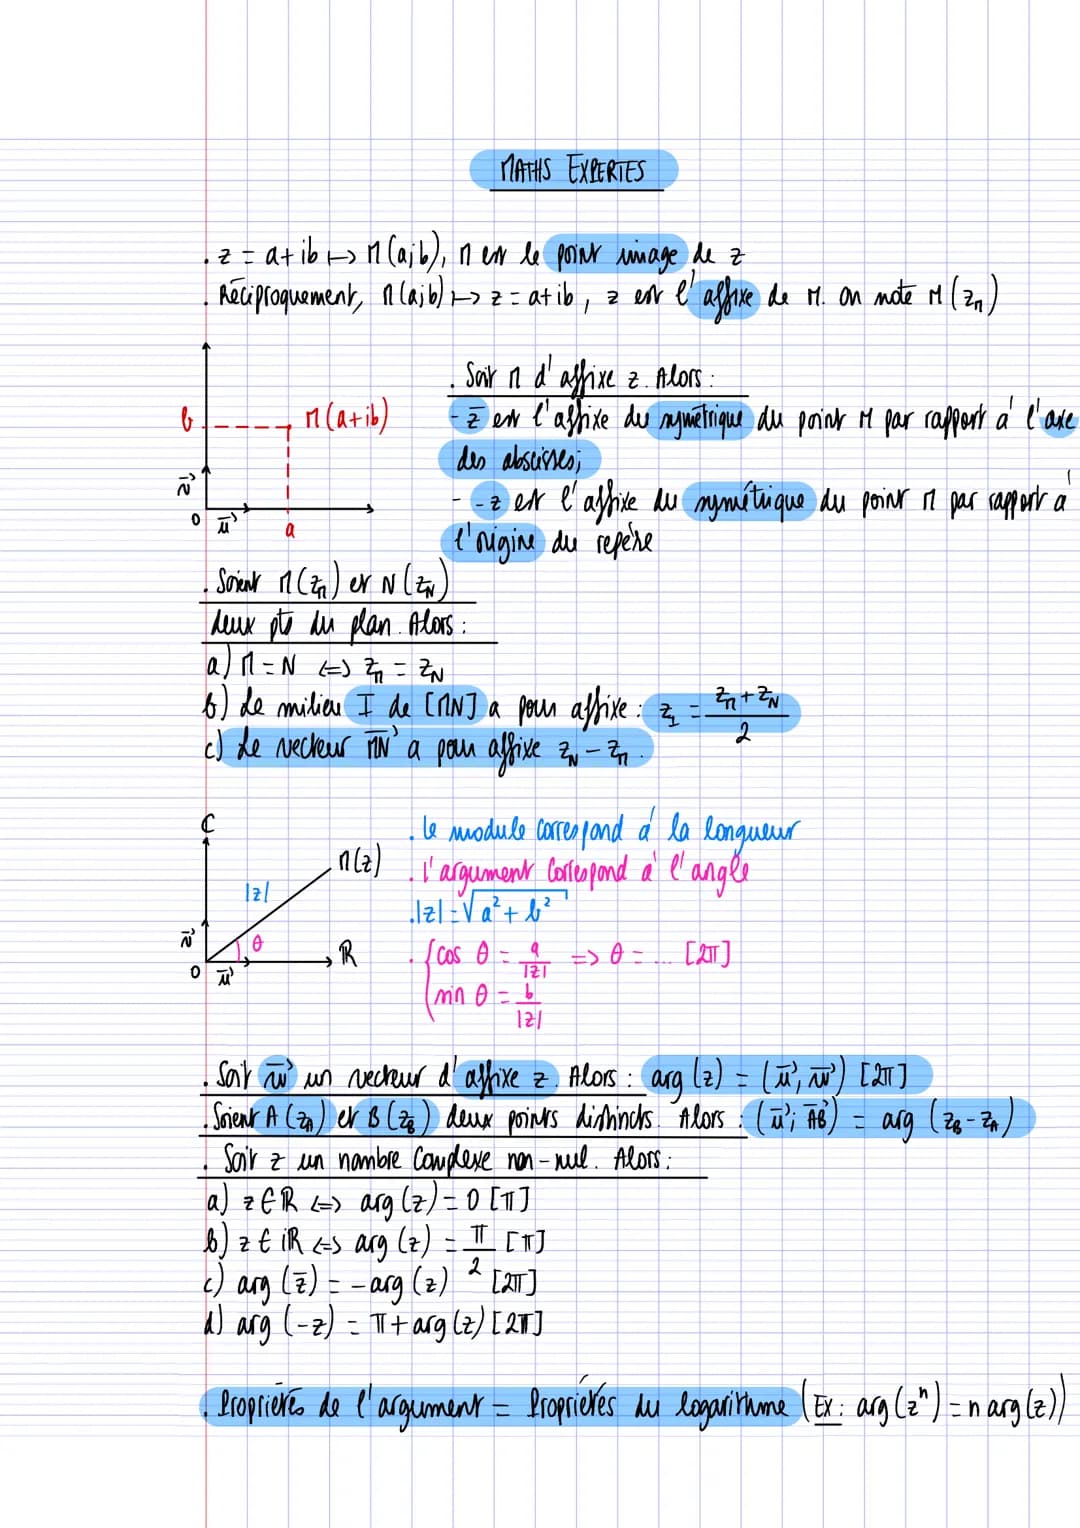 MATHS EXPERTES
. z = a+ib ↦ M(a;b), M est le point image de z
. Réciproquement, M(a;b) ↦ z = a+ib, z est l'affixe de M. On note M(z_M)
b
M(a+ib)
v⃗
O
u⃗
a
. Soit M d'affixe z. Alors :
- z̄ est l'affixe du symétrique du point M par rapport à l'axe
des abscisses;
- -z est l'affixe du symétrique du point M par rapport à
l'origine du repère
. Soient M(z_M) et N(z_N)
deux pts du plan. Alors :
a) M = N ⟺ z_M = z_N
b) Le milieu I de [MN] a pour affixe : z_I = (z_M + z_N)/2
c) Le vecteur MN⃗ a pour affixe z_N - z_M.
C
M(z)
|z|
θ
v⃗
O
u⃗
ℝ
. Le module correspond à la longueur
. L'argument correspond à l'angle
. |z| = √(a² + b²)
. { cos θ = a/|z| => θ = ... [2π]
sin θ = b/|z|
. Soit w⃗ un vecteur d'affixe z. Alors : arg(z) = (u⃗, w⃗) [2π]
. Soient A(z_A) et B(z_B) deux points distincts. Alors : (u⃗; AB⃗) = arg(z_B - z_A)
. Soit z un nombre complexe non-nul. Alors :
a) z ∈ ℝ ⟺ arg(z) = 0 [π]
b) z ∈ iℝ ⟺ arg(z) = π/2 [π]
c) arg(z̄) = -arg(z) [2π]
d) arg(-z) = π + arg(z) [2π]
. Propriétés de l'argument = Propriétés du logarithme (Ex : arg(zⁿ) = n arg(z))